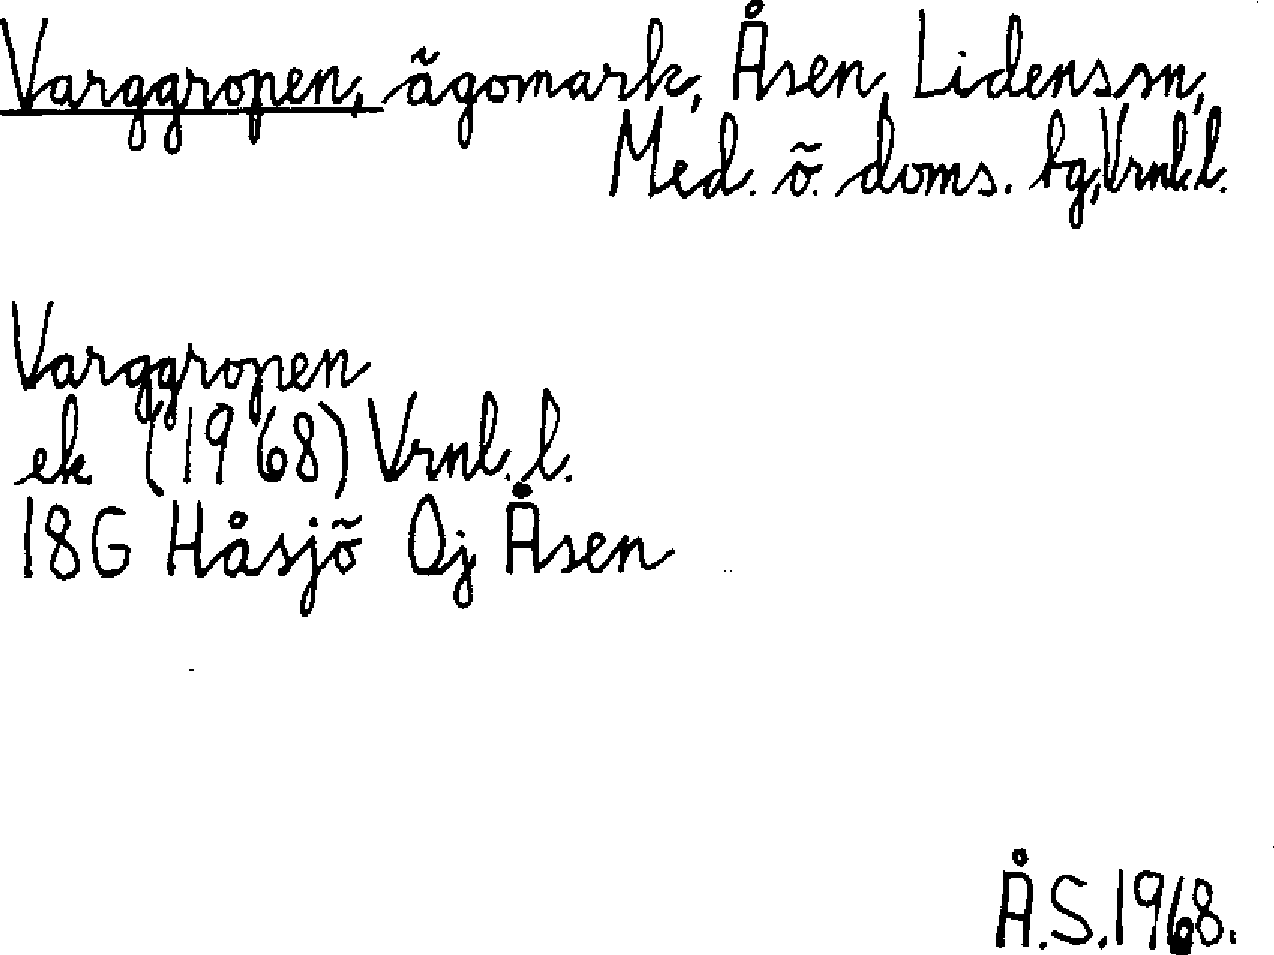 Varggropen, ägomark, Åsen, Lidens sn,
Med. ö. doms. tg, Vrnl. l.
Varggropen
ek (1968) Vrnl. l.
18G Håsjö 0j Åsen
Å.S. 1968.